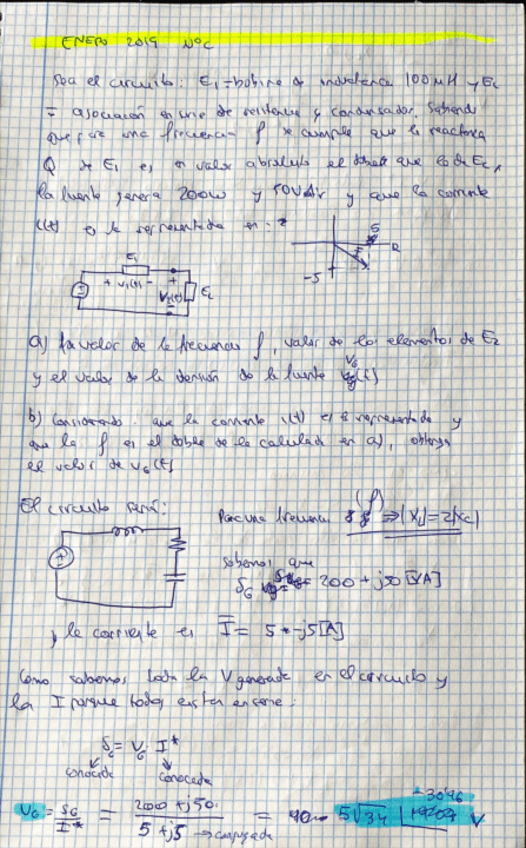 ENERO 2019 NºC
Sea el circuito: E1 = bobina de inductancia 100 μH y E2
= asociación en serie de resistencia y condensador. Sabiendo
que para una frecuencia f se cumple que la reactancia
Q de E1 es en valor absoluto el doble que la de E2,
la fuente genera 200W y 50VAr y que la corriente
i(t) es la representada en:
5
R
-5
E1
+ v1(t) -
+
E2
a) valor de la frecuencia f, valor de los elementos de E2
y el valor de la tensión de la fuente vG(t)
b) Considerando que la corriente i(t) es la representada y
que la f es el doble de la calculada en a), obtenga
el valor de vG(t)
El circuito será:
Para una frecuencia (f) ⇒ |XL| = 2|XC|
sabemos que
SG = 200 + j50 [VA]
y la corriente es I = 5 - j5 [A]
Como sabemos toda la V generada en el circuito y
la I porque todos están en serie:
SG = VG I*
conocida conocida
VG = SG/I* = 200 + j50/5 + j5 → conjugada = 5√34 -30'96 V